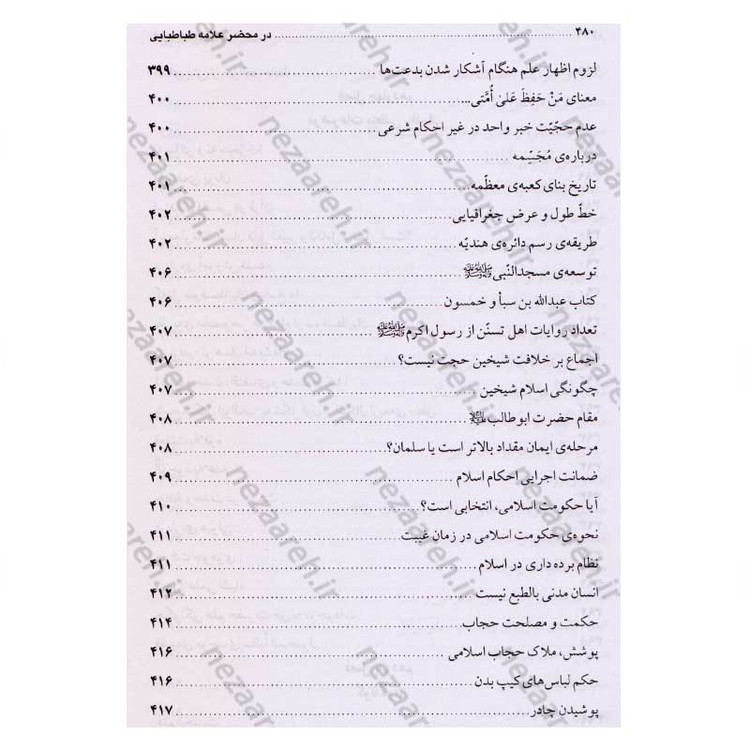 ۴۸۰ ................ در محضر علامه طباطبایی
لزوم اظهار علم هنگام آشکار شدن بدعت‌ها ................ ۳۹۹
معنای مَنْ حَفِظَ عَلیٰ اُمَّتی... ................ ۴۰۰
عدم حجّیّت خبر واحد در غیر احکام شرعی ................ ۴۰۰
درباره‌ی مُجَسِّمه ................ ۴۰۱
تاریخ بنای کعبه‌ی معظّمه ................ ۴۰۱
خطّ طول و عرض جغرافیایی ................ ۴۰۲
طریقه‌ی رسم دائره‌ی هندیّه ................ ۴۰۲
توسعه‌ی مسجدالنّبی ﷺ ................ ۴۰۶
کتاب عبدالله بن سبأ و خمسون ................ ۴۰۶
تعداد روایات اهل تسنّن از رسول اکرم ﷺ ................ ۴۰۷
اجماع بر خلافت شیخین حجت نیست؟ ................ ۴۰۷
چگونگی اسلام شیخین ................ ۴۰۷
مقام حضرت ابوطالب ................ ۴۰۸
مرحله‌ی ایمان مقداد بالاتر است یا سلمان؟ ................ ۴۰۸
ضمانت اجرایی احکام اسلام ................ ۴۰۹
آیا حکومت اسلامی، انتخابی است؟ ................ ۴۱۰
نحوه‌ی حکومت اسلامی در زمان غیبت ................ ۴۱۱
نظام برده داری در اسلام ................ ۴۱۱
انسان مدنی بالطبع نیست ................ ۴۱۲
حکمت و مصلحت حجاب ................ ۴۱۴
پوشش، ملاک حجاب اسلامی ................ ۴۱۶
حکم لباس‌های کیپ بدن ................ ۴۱۶
پوشیدن چادر ................ ۴۱۷
nezaareh.ir